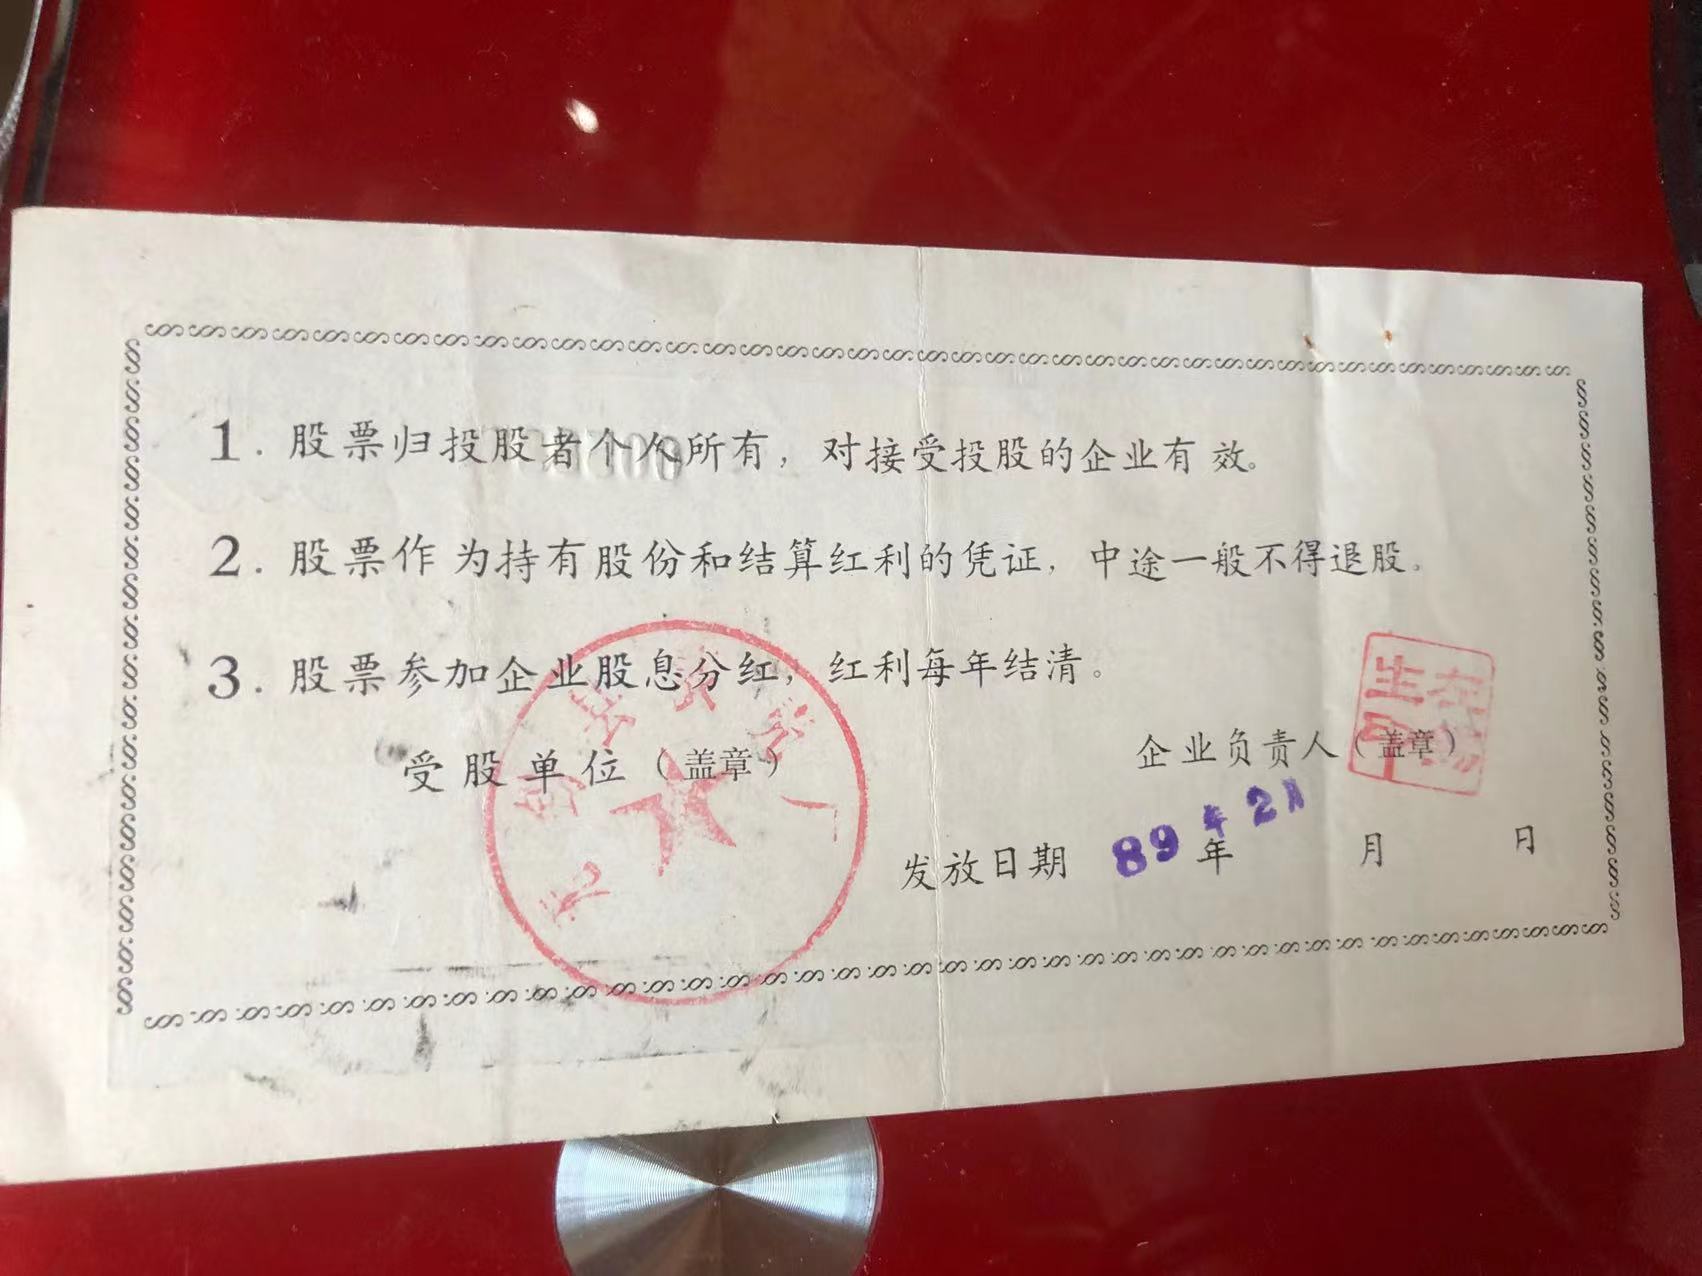 1. 股票归投股者个人所有，对接受投股的企业有效。
2. 股票作为持有股份和结算红利的凭证，中途一般不得退股。
3. 股票参加企业股息分红，红利每年结清。
受股单位（盖章）
企业负责人（盖章）
89年2月
发放日期 年 月 日